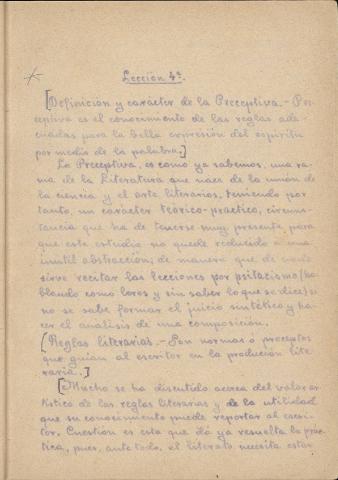 Lección 4ª.
[Definicion y carácter de la Preceptiva.- Pre-
ceptiva es el conocimiento de las reglas ade-
cuadas para la bella expresión del espíritu
por medio de la palabra.]
La Preceptiva, es como ya sabemos, una ra-
ma de la Literatura que nace de la unión de
la ciencia y el arte literarios, teniendo por
tanto, un carácter teórico-practico, circuns-
tancia que ha de tenerse muy presente, para
que este estudio no quede reducido a una
inutil abstracción; de manera que de nada
sirve recitar las lecciones por psitacismo (ha-
blando como loros y sin saber lo que se dice) si
no se sabe formar el juicio sintético y ha-
cer el analisis de una composición.
[Reglas literarias.- Son normas o preceptos
que guian al escritor en la produción lite-
raria.]
[Mucho se ha discutido acerca del valor ar-
tístico de las reglas literarias y de la utilidad
que su conocimiento puede reportar al escri-
tor. Cuestión es esta que dá ya resuelta la prác-
tica, pues, ante todo, el literato necesita estar